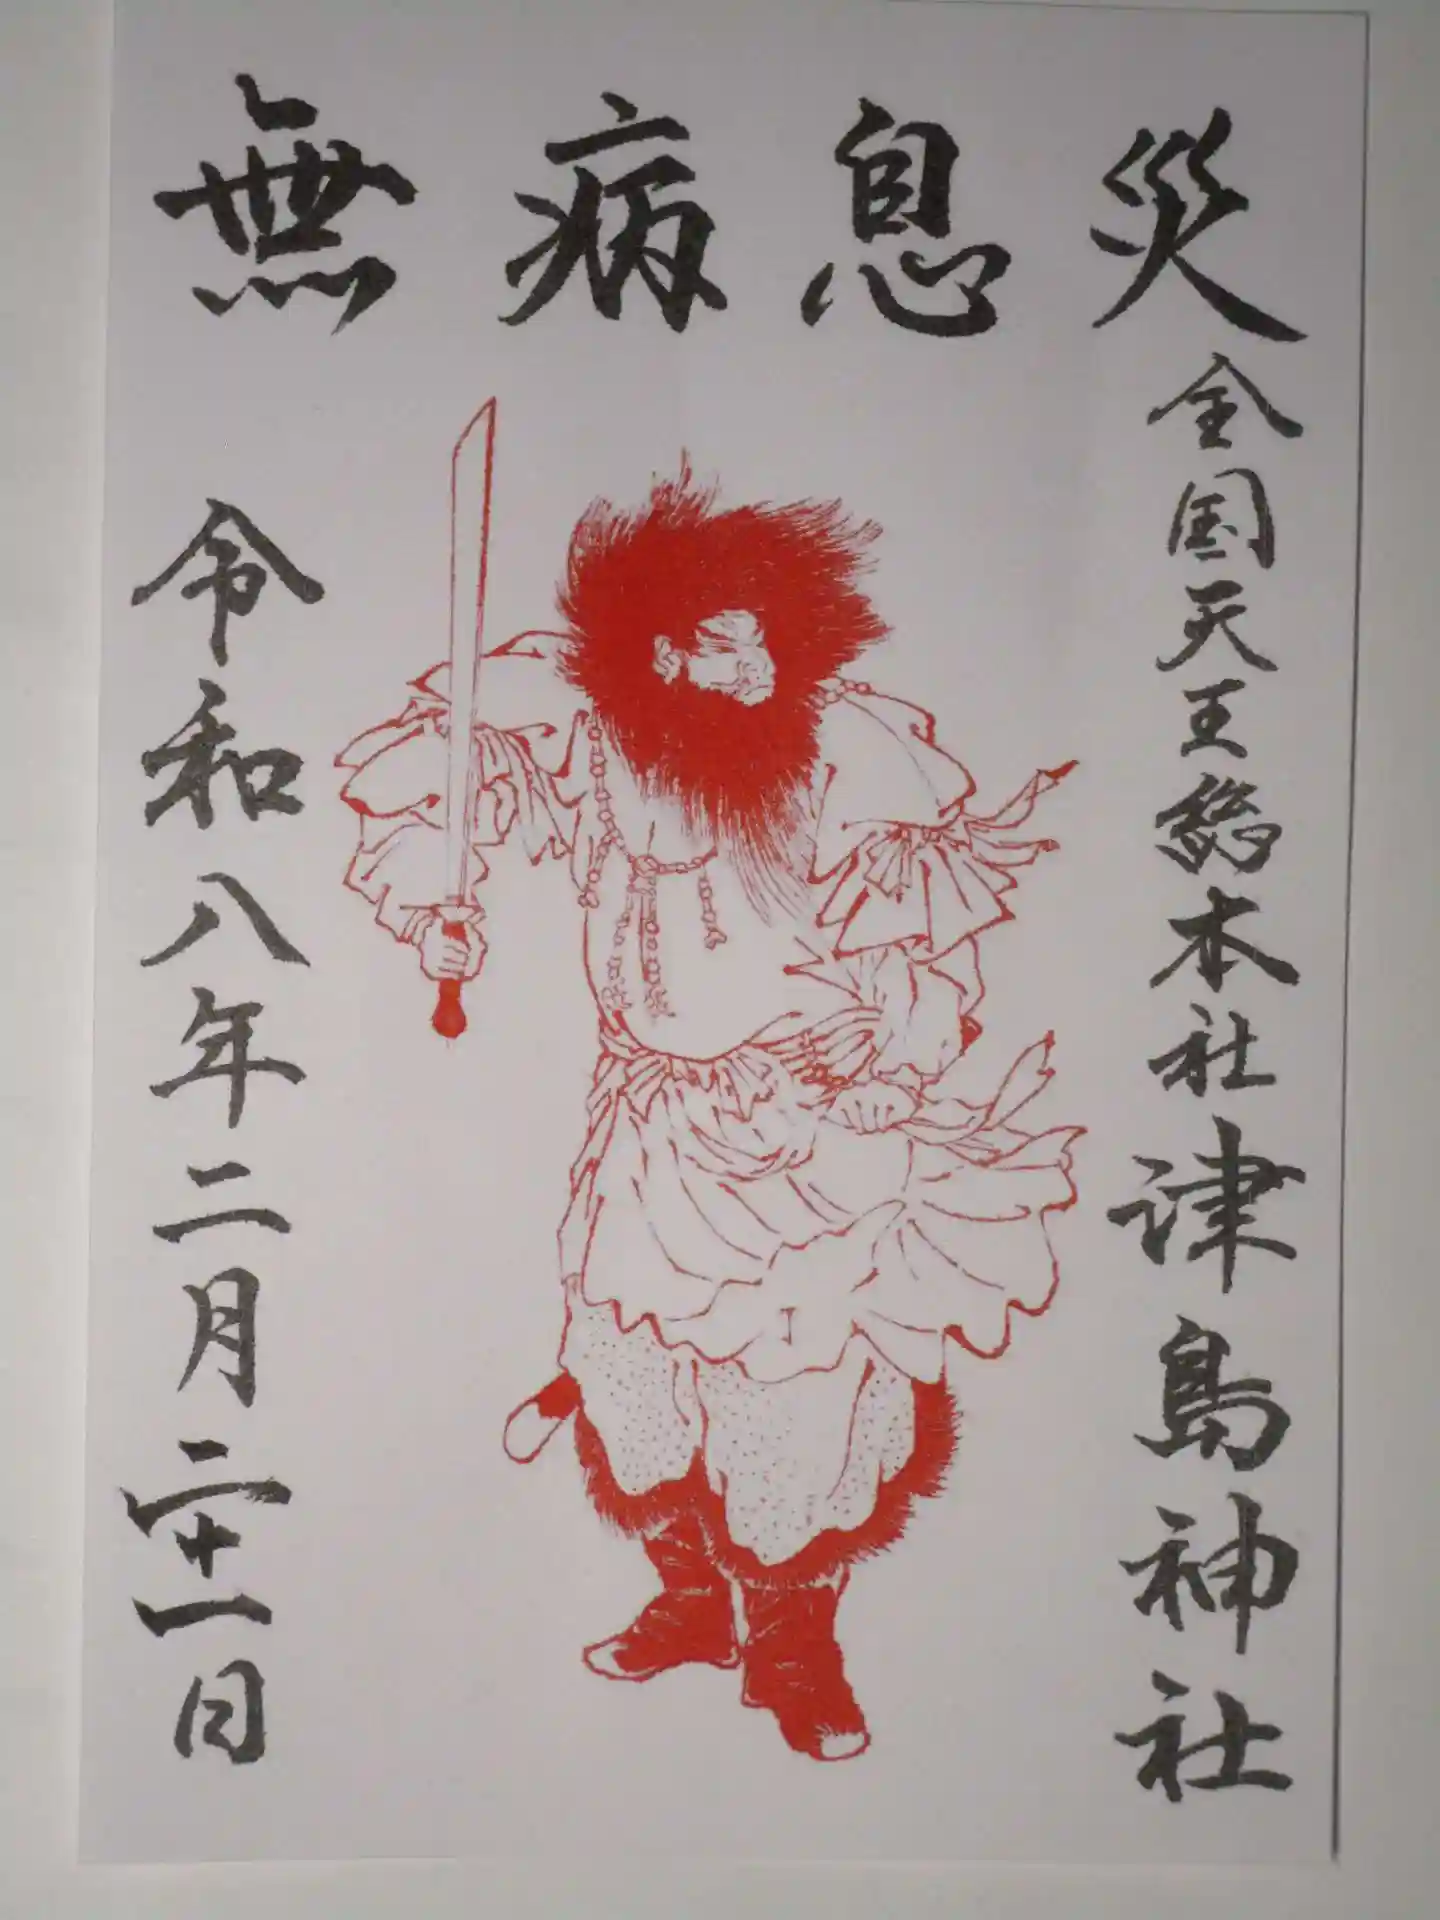 無病息災
全国天王総本社津島神社
令和八年二月二十一日